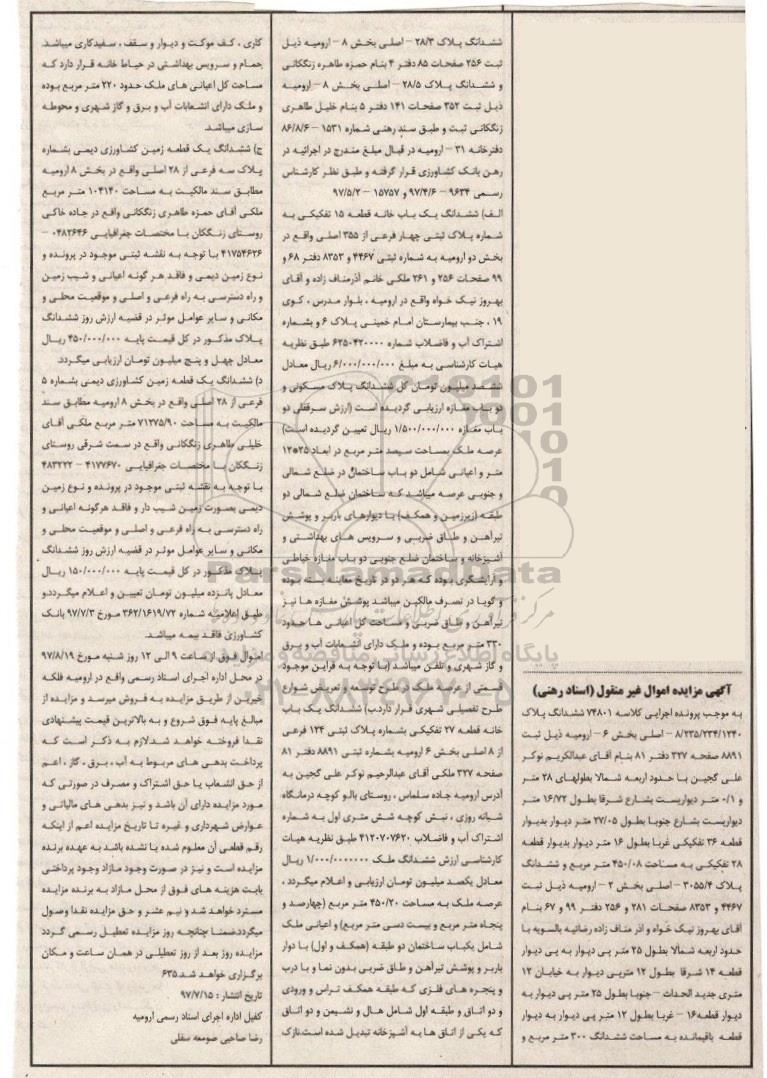 آگهی مزایده اموال غیر منقول (اسناد رهنی)
به موجب پرونده اجرایی کلاسه ۷۴۸۰۱ ششدانگ پلاک
۸/۲۳۵/۲۳۴/۱۲۴۰ – اصلی بخش ۶ – ارومیه ذیل ثبت
۸۸۹۱ صفحه ۳۲۷ دفتر ۸۱ بنام آقای عبدالکریم نوکر
علی گجین با حدود اربعه شمالا بطولهای ۲۸ متر
و ۰/۱ متر دیواریست بشارع شرقا بطول ۱۶/۷۲ متر
دیواریست بشارع جنوبا بطول ۲۷/۰۵ متر دیوار بدیوار
قطعه ۳۶ تفکیکی غربا بطول ۱۶ متر دیوار بدیوار قطعه
۲۸ تفکیکی به مساحت ۴۵۰/۰۸ متر مربع و ششدانگ
پلاک ۳۰۵۵/۴ – اصلی بخش ۲ – ارومیه ذیل ثبت
۴۴۶۷ و ۸۳۵۳ صفحات ۲۸۱ و ۲۵۶ دفتر ۹۹ و ۶۷ بنام
آقای بهروز نیک خواه و اذر مناف زاده رضائیه بالسویه با
حدود اربعه شمالا بطول ۲۵ متر پی دیوار به پی دیوار
قطعه ۱۴ شرقا بطول ۱۲ متر پی دیوار به خیابان ۱۲
متری جدید الحداث – جنوبا بطول ۲۵ متر پی دیوار به
دیوار قطعه ۱۶ – غربا بطول ۱۲ متر پی دیوار به دیوار
قطعه باقیمانده به مساحت ششدانگ ۳۰۰ متر مربع و
ششدانگ پلاک ۲۸/۳ – اصلی بخش ۸ – ارومیه ذیل
ثبت ۲۵۶ صفحات ۸۵ دفتر ۴ بنام حمزه طاهره زنگکانی
و ششدانگ پلاک ۲۸/۵ – اصلی بخش ۸ – ارومیه
ذیل ثبت ۳۵۲ صفحات ۱۴۱ دفتر ۵ بنام خلیل طاهری
زنگکانی ثبت و طبق سند رهنی شماره ۱۵۳۱ – ۸۶/۸/۶
دفترخانه ۳۱ – ارومیه در قبال مبلغ مندرج در اجرائیه در
رهن بانک کشاورزی قرار گرفته و طبق نظر کارشناس
رسمی ۹۶۳۴ – ۹۷/۴/۶ و ۱۵۷۵۷ – ۹۷/۵/۲
الف) ششدانگ یک باب خانه قطعه ۱۵ تفکیکی به
شماره پلاک ثبتی چهار فرعی از ۳۵۵ اصلی واقع در
بخش دو ارومیه به شماره ثبتی ۴۴۶۷ و ۸۳۵۳ دفتر ۶۸ و
۹۹ صفحات ۲۵۶ و ۲۶۱ ملکی خانم آذرمناف زاده و آقای
بهروز نیک خواه واقع در ارومیه ، بلوار مدرس ، کوی
۱۹ ، جنب بیمارستان امام خمینی پلاک ۶ و بشماره
اشتراک آب و فاضلاب شماره ۶۲۵۰۴۲۰۰۰۰ طبق نظریه
هیات کارشناسی به مبلغ ۶/۰۰۰/۰۰۰/۰۰۰ ریال معادل
ششصد میلیون تومان کل ششدانگ پلاک مسکونی و
دو باب مغازه ارزیابی گردیده است (ارزش سرقفلی دو
باب مغازه ۱/۵۰۰/۰۰۰/۰۰۰ ریال تعیین گردیده است)
عرصه ملک بمساحت سیصد متر مربع در ابعاد ۲۵*۱۲
متر و اعیانی شامل دو باب ساختمان در ضلع شمالی
و جنوبی عرصه میباشد که ساختمان ضلع شمالی دو
طبقه (زیرزمین و همکف) با دیوارهای باربر و پوشش
تیرآهن و طاق ضربی و سرویس های بهداشتی و
آشپزخانه و ساختمان ضلع جنوبی دو باب مغازه خیاطی
و آرایشگری بوده که هر دو در تاریخ معاینه بسته بوده
و گویا در تصرف مالکین میباشد پوشش مغازه ها نیز
تیرآهن و طاق ضربی و مساحت کل اعیانی ها حدود
۲۳۰ متر مربع بوده و ملک دارای انشعابات آب و برق
و گاز شهری و تلفن میباشد (با توجه به قراین موجود
قسمتی از عرصه ملک در طرح توسعه و تعریض شوارع
طرح تفصیلی شهری قرار دارد.ب) ششدانگ یک باب
خانه قطعه ۲۷ تفکیکی بشماره پلاک ثبتی ۱۲۴ فرعی
از ۸ اصلی بخش ۶ ارومیه بشماره ثبتی ۸۸۹۱ دفتر ۸۱
صفحه ۳۲۷ ملکی آقای عبدالرحیم نوکر علی گجین به
آدرس ارومیه جاده سلماس ، روستای بالو کوچه درمانگاه
شبانه روزی ، نبش کوچه شش متری اول به شماره
اشتراک آب و فاضلاب ۴۱۲۰۷۰۷۶۲۰ طبق نظریه هیات
کارشناسی ارزش ششدانگ ملک ۱/۰۰۰/۰۰۰۰۰۰۰ ریال
معادل یکصد میلیون تومان ارزیابی و اعلام میگردد ،
عرصه ملک به مساحت ۴۵۰/۲۰ متر مربع (چهارصد و
پنجاه متر مربع و بیست دسی متر مربع) و اعیانی ملک
شامل یکباب ساختمان دو طبقه (همکف و اول) با دوار
باربر و پوشش تیرآهن و طاق ضربی بدون نما و با درب
و پنجره های فلزی که طبقه همکف تراس و ورودی
و دو اتاق و طبقه اول شامل هال و نشیمن و دو اتاق
که یکی از اتاق ها به آشپزخانه تبدیل شده است.نازک
کاری ، کف موکت و دیوار و سقف ، سفیدکاری میباشد.
حمام و سرویس بهداشتی در حیاط خانه قرار دارد که
مساحت کل اعیانی های ملک حدود ۲۲۰ متر مربع بوده
و ملک دارای انشعابات آب و برق و گاز شهری و محوطه
سازی میباشد.
ج) ششدانگ یک قطعه زمین کشاورزی دیمی بشماره
پلاک سه فرعی از ۲۸ اصلی واقع در بخش ۸ ارومیه
مطابق سند مالکیت به مساحت ۱۰۴۱۴۰ متر مربع
ملکی آقای حمزه طاهری زنگکانی واقع در جاده خاکی
روستای زنگکان با مختصات جغرافیایی ۰۴۸۲۶۴۶ –
۴۱۷۵۴۶۳۶ با توجه به نقشه ثبتی موجود در پرونده و
نوع زمین دیمی و فاقد هر گونه اعیانی و شیب زمین
و راه دسترسی به راه فرعی و اصلی و موقعیت محلی و
مکانی و سایر عوامل موثر در قضیه ارزش روز ششدانگ
پلاک مذکور در کل قیمت پایه ۴۵۰/۰۰۰/۰۰۰ ریال
معادل چهل و پنج میلیون تومان ارزیابی میگردد.
د) ششدانگ یک قطعه زمین کشاورزی دیمی بشماره ۵
فرعی از ۲۸ اصلی واقع در بخش ۸ ارومیه مطابق سند
مالکیت به مساحت ۷۱۲۷۵/۹۰ متر مربع ملکی آقای
خلیلی طاهری زنگکانی واقع در سمت شرقی روستای
زنگکان با مختصات جغرافیایی ۴۱۷۷۶۷۰ – ۴۸۳۲۲۲
با توجه به نقشه ثبتی موجود در پرونده و نوع زمین
دیمی بصورت زمین شیب دار و فاقد هرگونه اعیانی و
راه دسترسی به راه فرعی و اصلی و موقعیت محلی و
مکانی و سایر عوامل موثر در قضیه ارزش روز ششدانگ
پلاک مذکور در کل قیمت پایه ۱۵۰/۰۰۰/۰۰۰ ریال
معادل پانزده میلیون تومان تعیین و اعلام میگردد.و
طبق اعلامیه شماره ۳۶۲/۱۶۱۹/۷۲ مورخ ۹۷/۷/۳ بانک
کشاورزی فاقد بیمه میباشد.
اموال فوق از ساعت ۹ الی ۱۲ روز شنبه مورخ ۹۷/۸/۱۹
در محل اداره اجرای اسناد رسمی واقع در ارومیه فلکه
خیرین از طریق مزایده به فروش میرسد و مزایده از
مبالغ پایه فوق شروع و به بالاترین قیمت پیشنهادی
نقدا فروخته خواهد شد.لازم به ذکر است که
پرداخت بدهی های مربوط به آب ، برق ، گاز ، اعم
از حق انشعاب یا حق اشتراک و مصرف در صورتی که
مورد مزایده دارای آن باشد و نیز بدهی های مالیاتی و
عوارض شهرداری و غیره تا تاریخ مزایده اعم از اینکه
رقم قطعی آن معلوم شده یا نشده باشد به عهده برنده
مزایده است و نیز در صورت وجود مازاد وجود پرداختی
بابت هزینه های فوق از محل مازاد به برنده مزایده
مسترد خواهد شد و نیم عشر و حق مزایده نقدا وصول
میگردد.ضمنا چنانچه روز مزایده تعطیل رسمی گردد
مزایده روز بعد از روز تعطیلی در همان ساعت و مکان
برگزاری خواهد شد ۶۳۵
تاریخ انتشار : ۹۷/۷/۱۵
کفیل اداره اجرای اسناد رسمی ارومیه
رضا صاحبی صومعه سفلی
ParsNamadData
پایگاه اطلاع رسانی مناقصه و مزایده